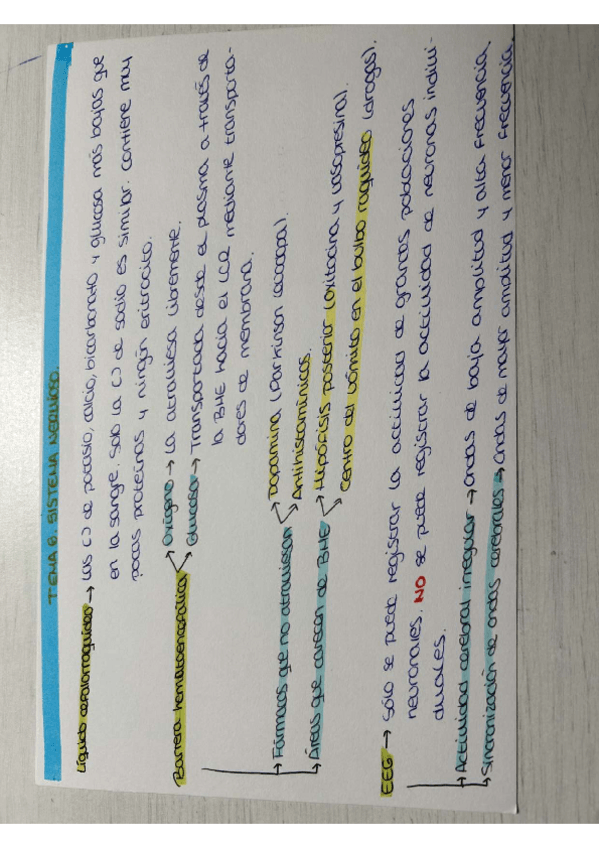 TEMA 6. SISTEMA NERVIOSO.
Líquido cefalorraquídeo → Las [] de potasio, calcio, bicarbonato y glucosa más bajas que
en la sangre. Solo la [] de sodio es similar. Contiene muy
pocas proteínas y ningún eritrocito.
Barrera hematoencefálica → Oxígeno → La atraviesa libremente.
→ Glucosa → Transportada desde el plasma a través de
la BHE hacia el LCR mediante transporta-
dores de membrana.
→ Fármacos que no atraviesan → Dopamina (Parkinson (dopa)).
→ Antihistamínicos.
→ Áreas que carecen de BHE → Hipófisis posterior (oxitocina y vasopresina).
→ Centro del vómito en el bulbo raquídeo (drogas).
EEG → Sólo se puede registrar la actividad de grandes poblaciones
neuronales. NO se puede registrar la actividad de neuronas indivi-
duales.
→ Actividad cerebral irregular → ondas de baja amplitud y alta frecuencia.
→ Sincronización de ondas cerebrales → ondas de mayor amplitud y menor frecuencia.